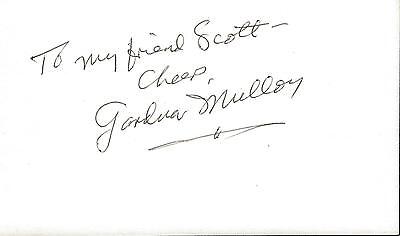 To my friend Scott –
Cheers,
Gardnar Mulloy